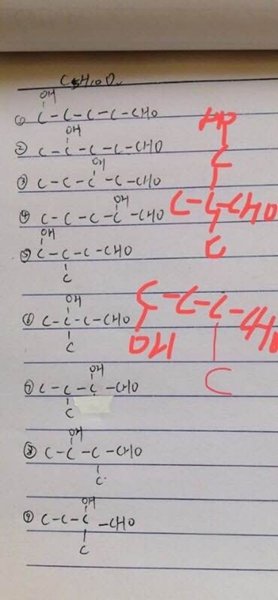 C5H10O
OH
① C-C-C-C-CHO
OH
② C-C-C-C-CHO
OH
③ C-C-C-C-CHO
OH
④ C-C-C-C-CHO
OH
⑤ C-C-C-CHO
C
OH
⑥ C-C-C-CHO
C
OH
⑦ C-C-C-CHO
C
OH
⑧ C-C-C-CHO
C
OH
⑨ C-C-C-CHO
C
C
C-C-CHO
C
C-C-C-CHO
OH
C